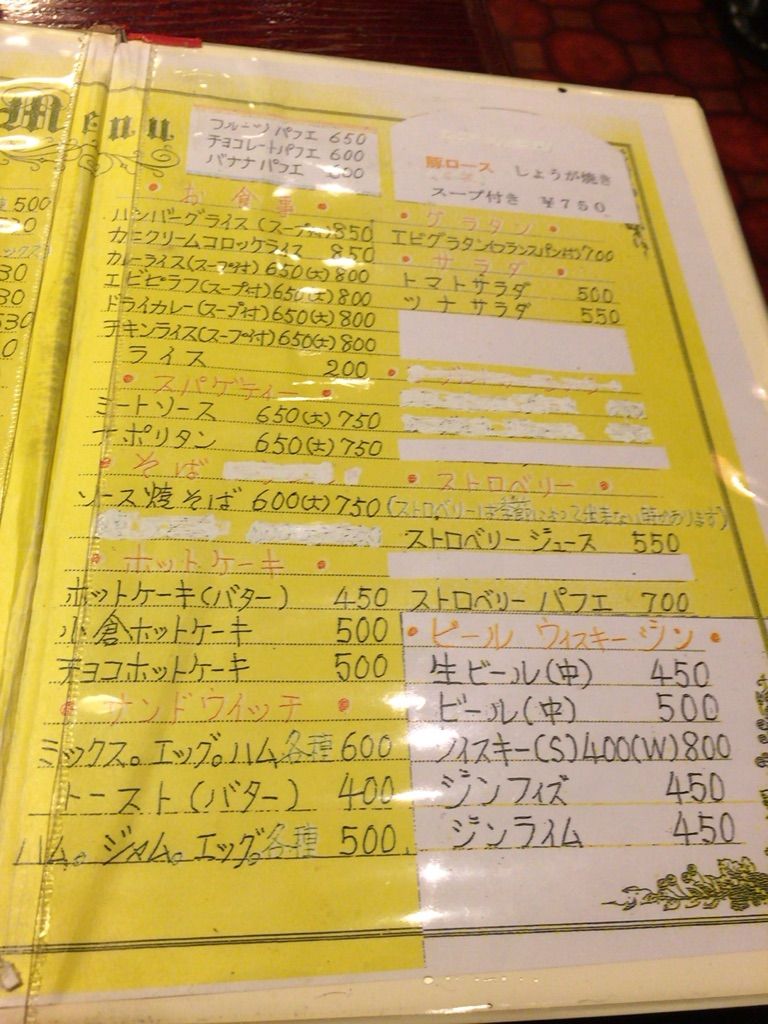 Menu
500
30
30
530
フルーツパフェ 650
チョコレートパフェ 600
バナナパフェ 600
豚ロース しょうが焼き
スープ付き ¥750
・お食事・
ハンバーグライス(スープ付)850
カニクリームコロッケライス 850
カレーライス(スープ付)650(大)800
エビピラフ(スープ付)650(大)800
ドライカレー(スープ付)650(大)800
チキンライス(スープ付)650(大)800
ライス 200
・スパゲティー・
ミートソース 650(大)750
ナポリタン 650(大)750
・そば
ソース焼そば 600(大)750
・ホットケーキ・
ホットケーキ(バター) 450
小倉ホットケーキ 500
チョコホットケーキ 500
・サンドウイッチ・
ミックス。エッグ。ハム各種 600
トースト(バター) 400
ハム。ジャム。エッグ。各種 500
・グラタン・
エビグラタン(フランスパン付)700
・サラダ・
トマトサラダ 500
ツナサラダ 550
・ストロベリー・
(ストロベリーは季節によって出来ない時があります)
ストロベリージュース 550
ストロベリーパフェ 700
・ビール ウィスキー ジン・
生ビール(中) 450
ビール(中) 500
ウイスキー(S)400(W)800
ジンフィズ 450
ジンライム 450